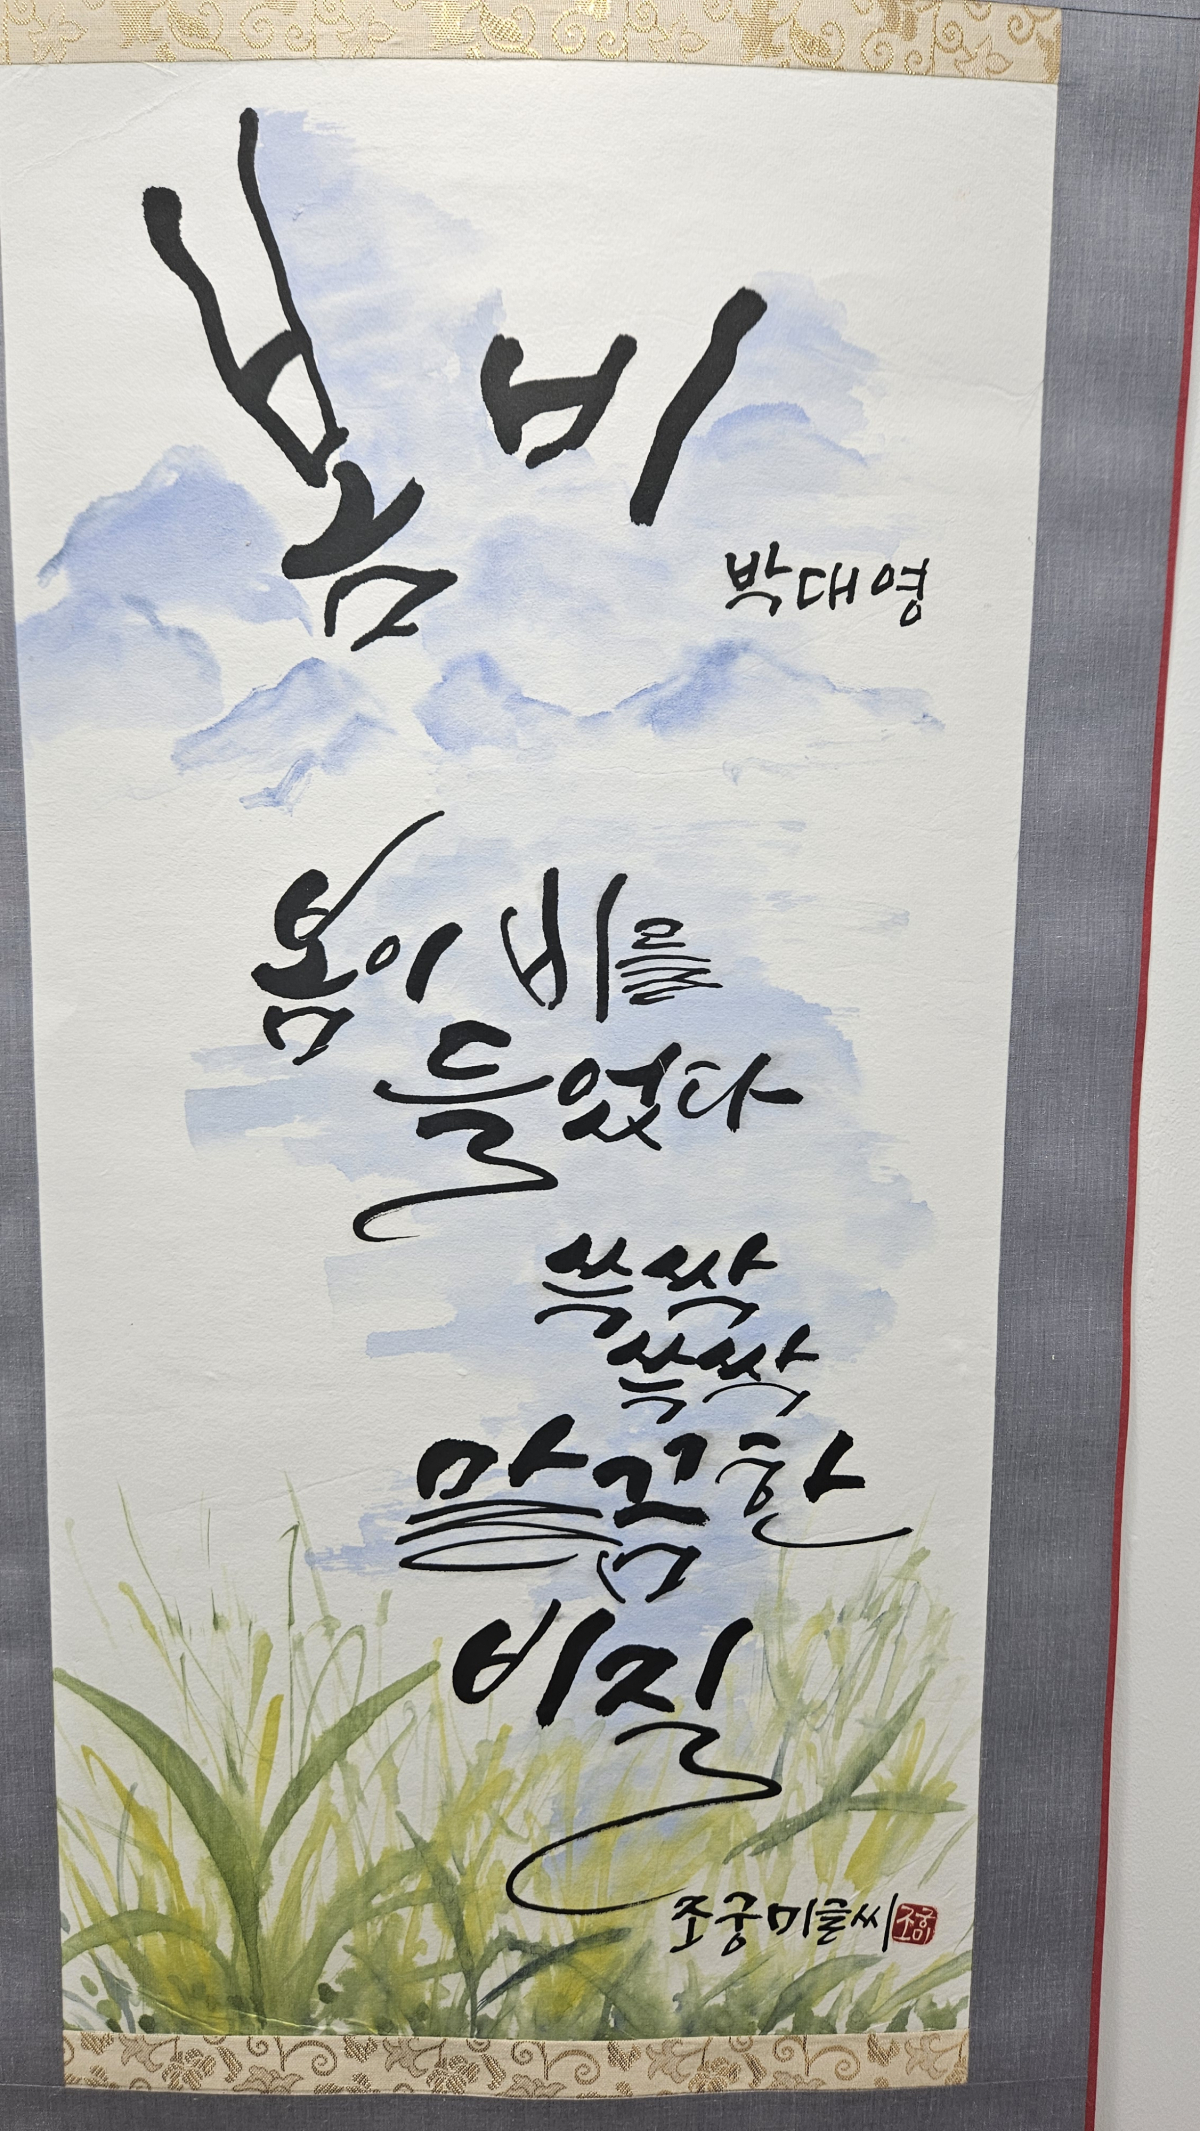 봄비
박대영
봄이 비를
들었다
쓱싹
쓱싹
말끔한
비질
조궁미글씨